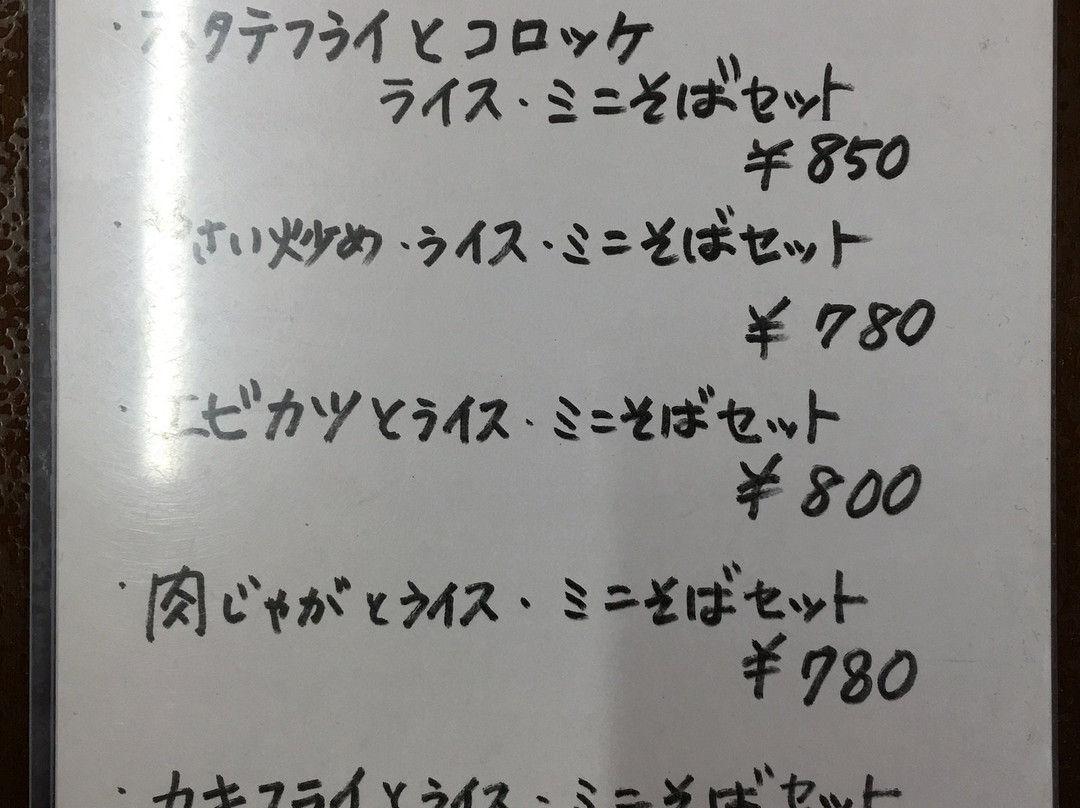 ・ホタテフライとコロッケ
ライス・ミニそばセット
¥850
さい炒め・ライス・ミニそばセット
¥780
・エビカツとライス・ミニそばセット
¥800
・肉じゃがとライス・ミニそばセット
¥780
・カキフライとライス・ミニそばセット